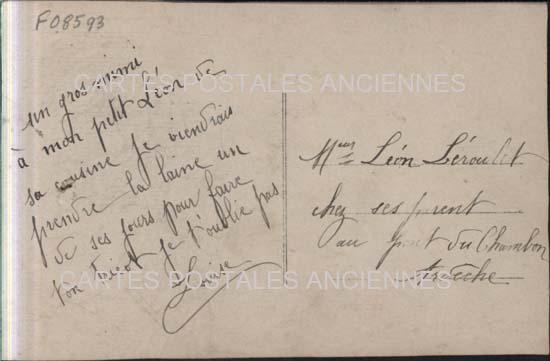 F08593
CARTES POSTALES ANCIENNES
un gros mimi
à mon petit Léon de
sa cousine je viendrais
prendre la laine un
de ses jours pour faire
ton tricot je t'oublie pas
Louise
Léon Léroulet
chez ses parent
au pont du Chambon
Ardèche
CARTES POSTALES ANCIENNES